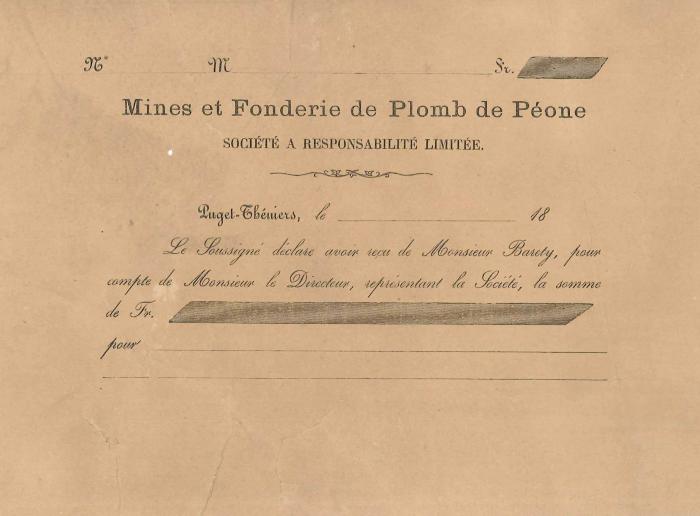 N° M Fr.
Mines et Fonderie de Plomb de Péone
SOCIÉTÉ A RESPONSABILITÉ LIMITÉE.
Puget-Théniers, le 18
Le Soussigné déclare avoir reçu de Monsieur Barety, pour
compte de Monsieur le Directeur, représentant la Société, la somme
de Fr.
pour